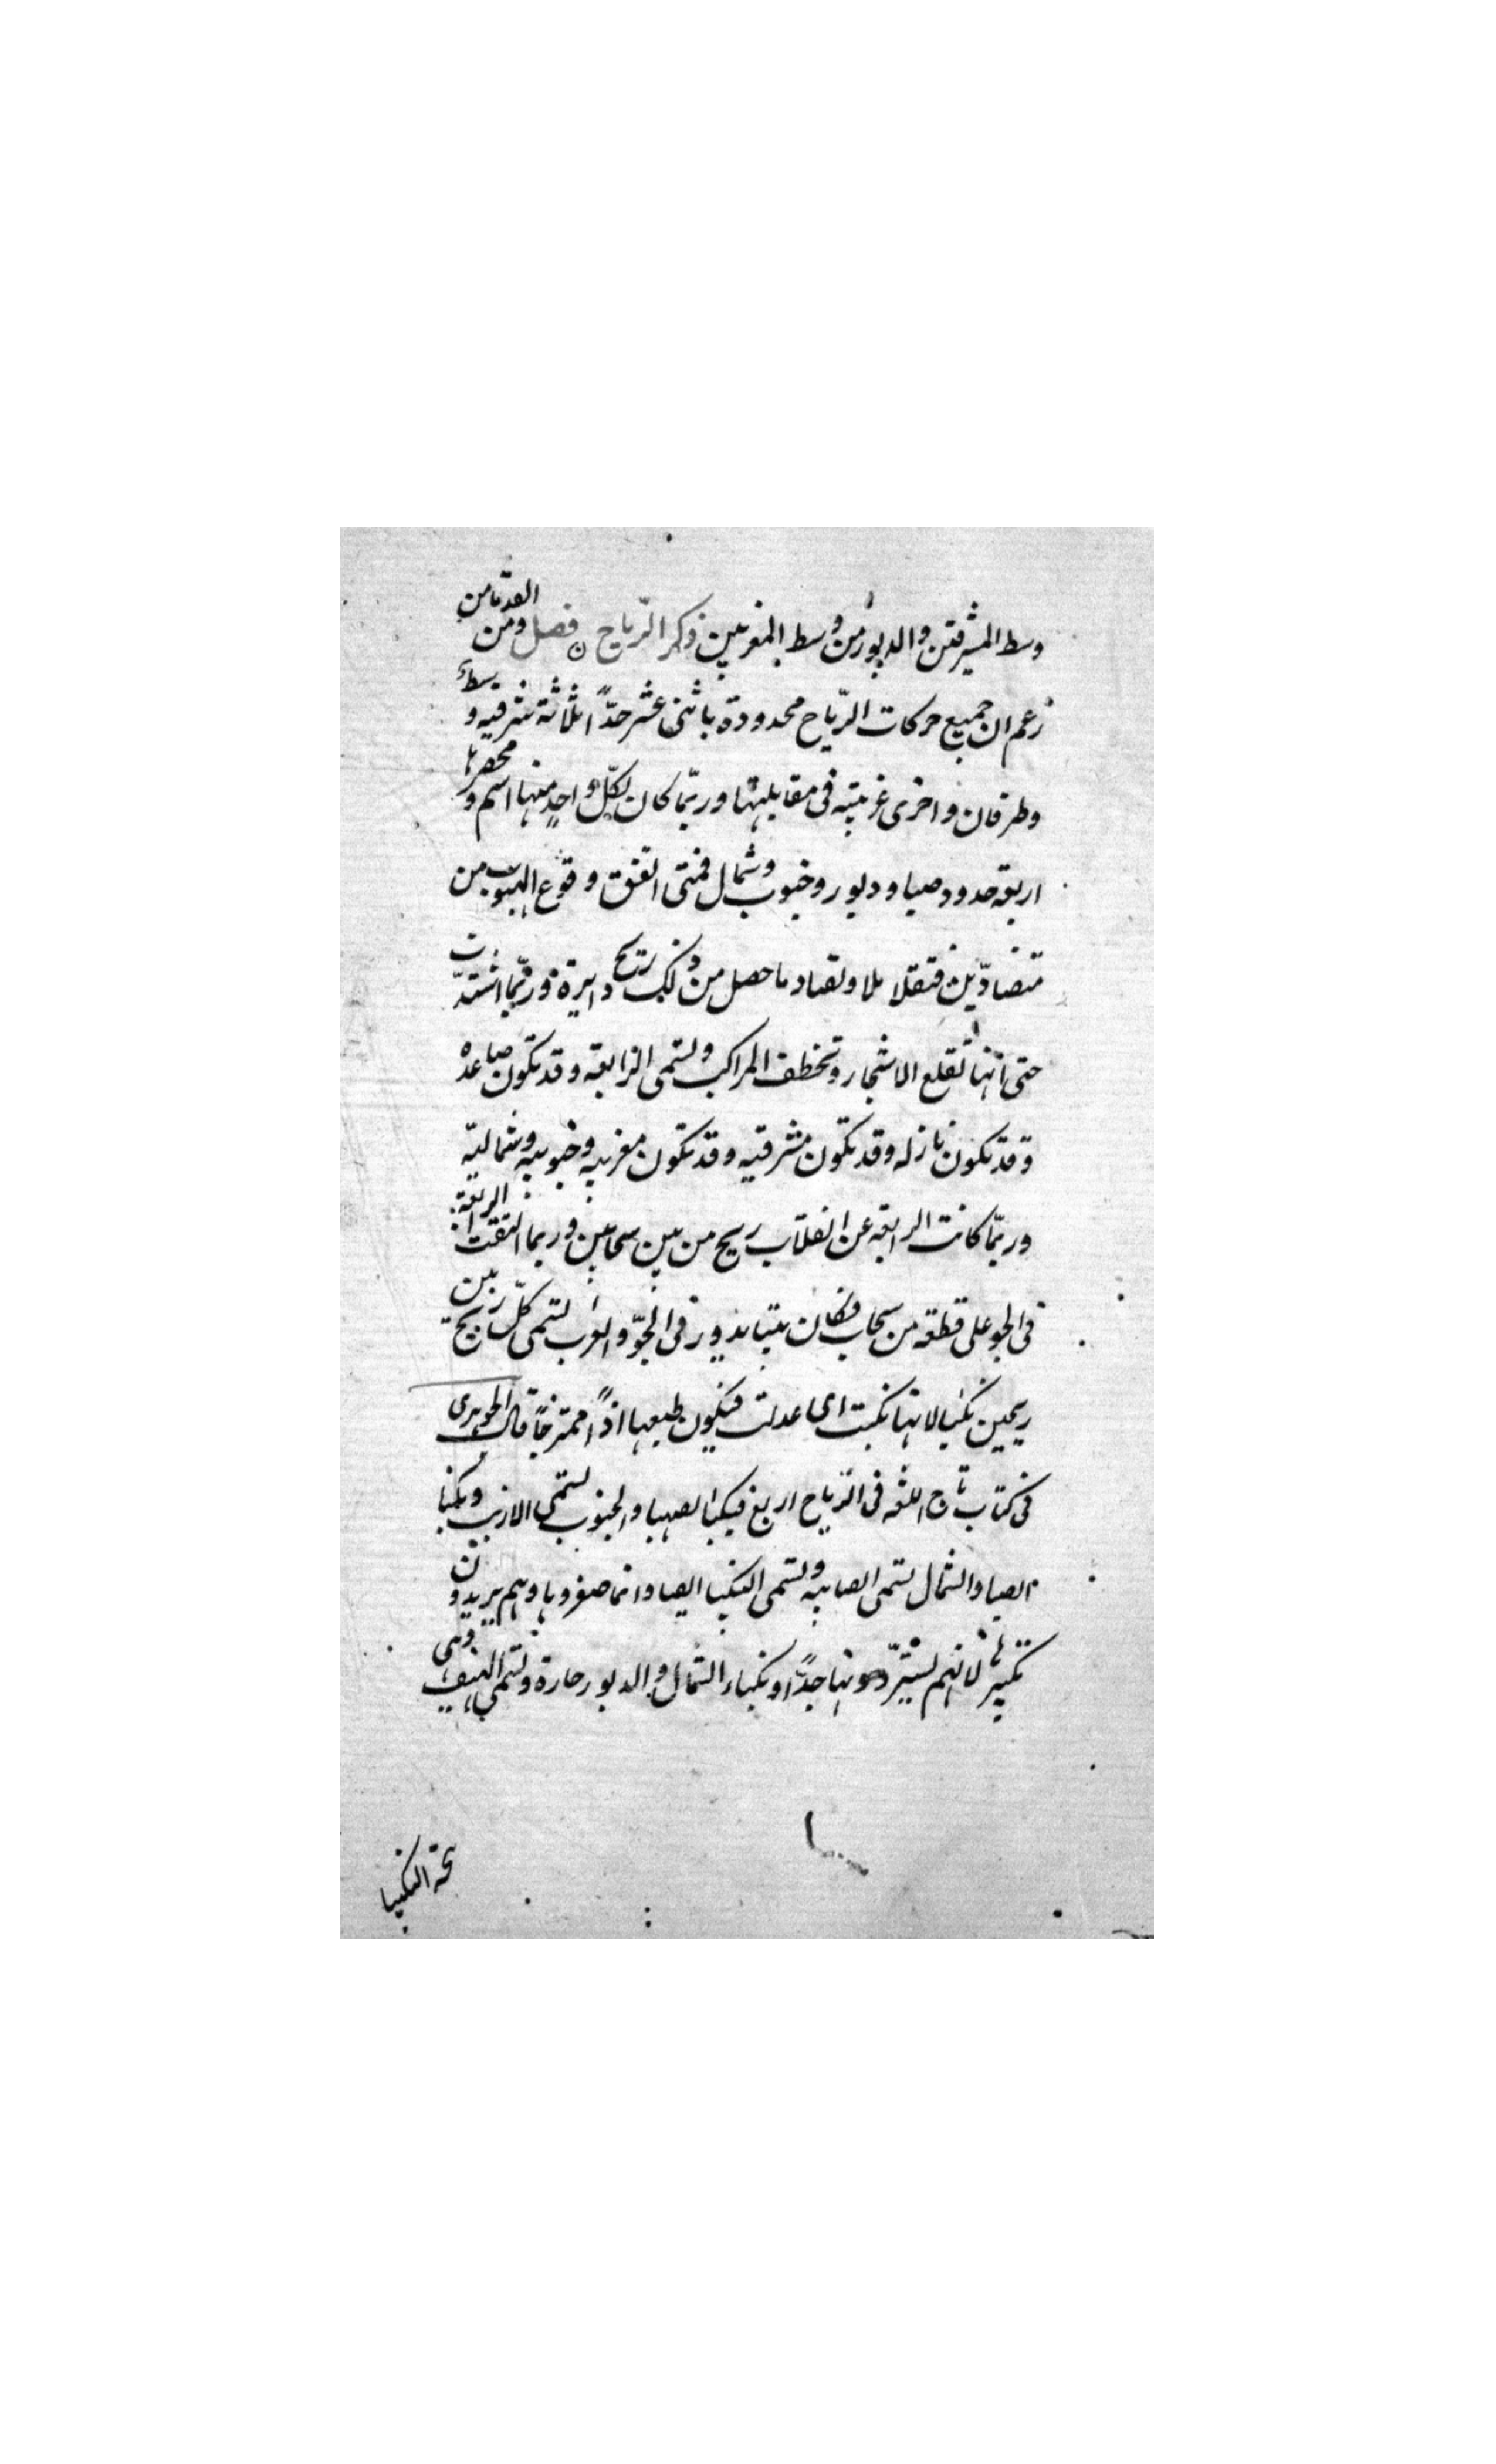 وسط المشرقتن والدبور من وسط المغربين ذكر الرّياح فصل ومن القدّما من
زعم ان جميع حركات الرّياح محدودة باثنى عشر حدًّا ثلاثة شرقيه و
وطرفان واخرى غربيّه فى مقابلتها وربّما كان لكلّ واحدٍ منها اسم و محصرها
اربعه حدود صبا ودبور وجنوب وشمال فمتى اتفق وقوع الهبوب من
متضادّين ما حصل من ذلك ريح دايرة وربّما اشتدّت
حتى انّها تقلع الاشجار وتخطف المراكب وتسمى الزابعه وقد تكون صاعده
وقد تكون نازله وقد تكون مشرقيه وقد تكون مغربيه وجنوبيه وشماليّه
وربّما كانت الرابعه عن انقلاب ريح من بين سحابين وربما التقت
فى الجو على قطعه من سحاب فكان يدور فى الجوّ والعرب تسمى كلّ ريح بين
ريحين نكبا لانها نكبت اى عدلت فيكون طبعها اذًا ممتزجًا قال الجوهرى
فى كتاب تاج اللغه فى الرّياح اربع فنكبا الصبا والجنوب تسمى الازيب ونكبا
الصبا والشمال تسمى الصابيه وتسمى النكيبا ايضا وانما صغروها وهم يريدون
تكبيرها لانهم يستبردونها جدًّا ونكباء الشمال والدبور حارة وتسمى الهيف وهى
يحة النكيبا